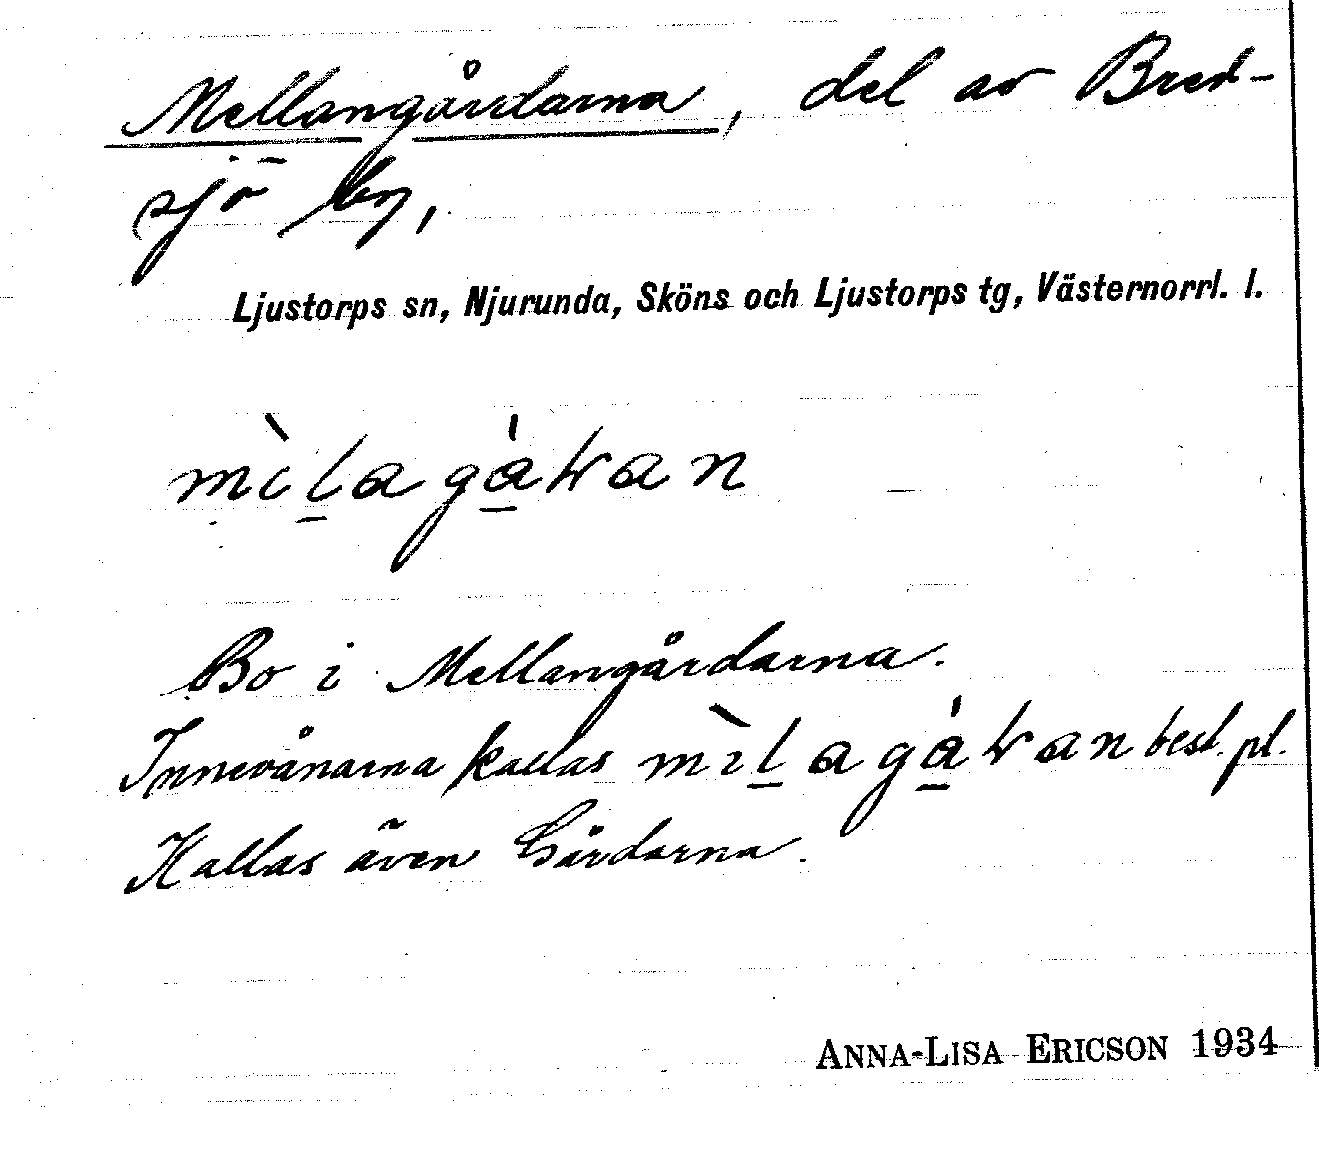 Mellangårdarna, del av Bred-
sjö by,
Ljustorps sn, Njurunda, Sköns och Ljustorps tg, Västernorrl. l.
Bo i Mellangårdarna.
Innevånarna kallas best. pl.
Kallas även Gårdarna.
ANNA-LISA ERICSON 1934